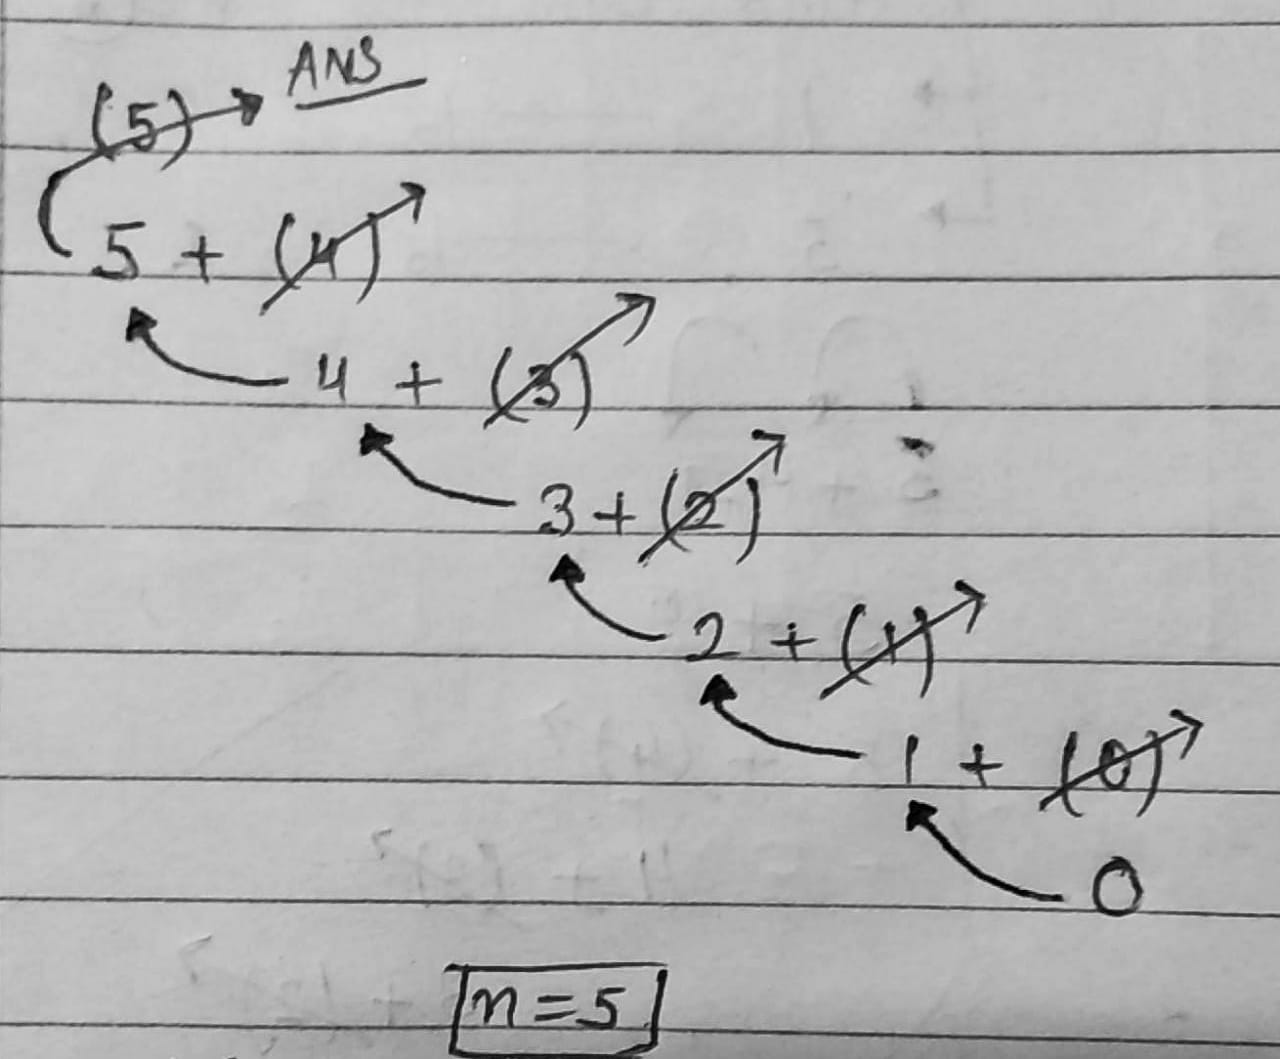 ANS
(5)
5 + (4)
4 + (3)
3 + (2)
2 + (1)
1 + (0)
0
n = 5